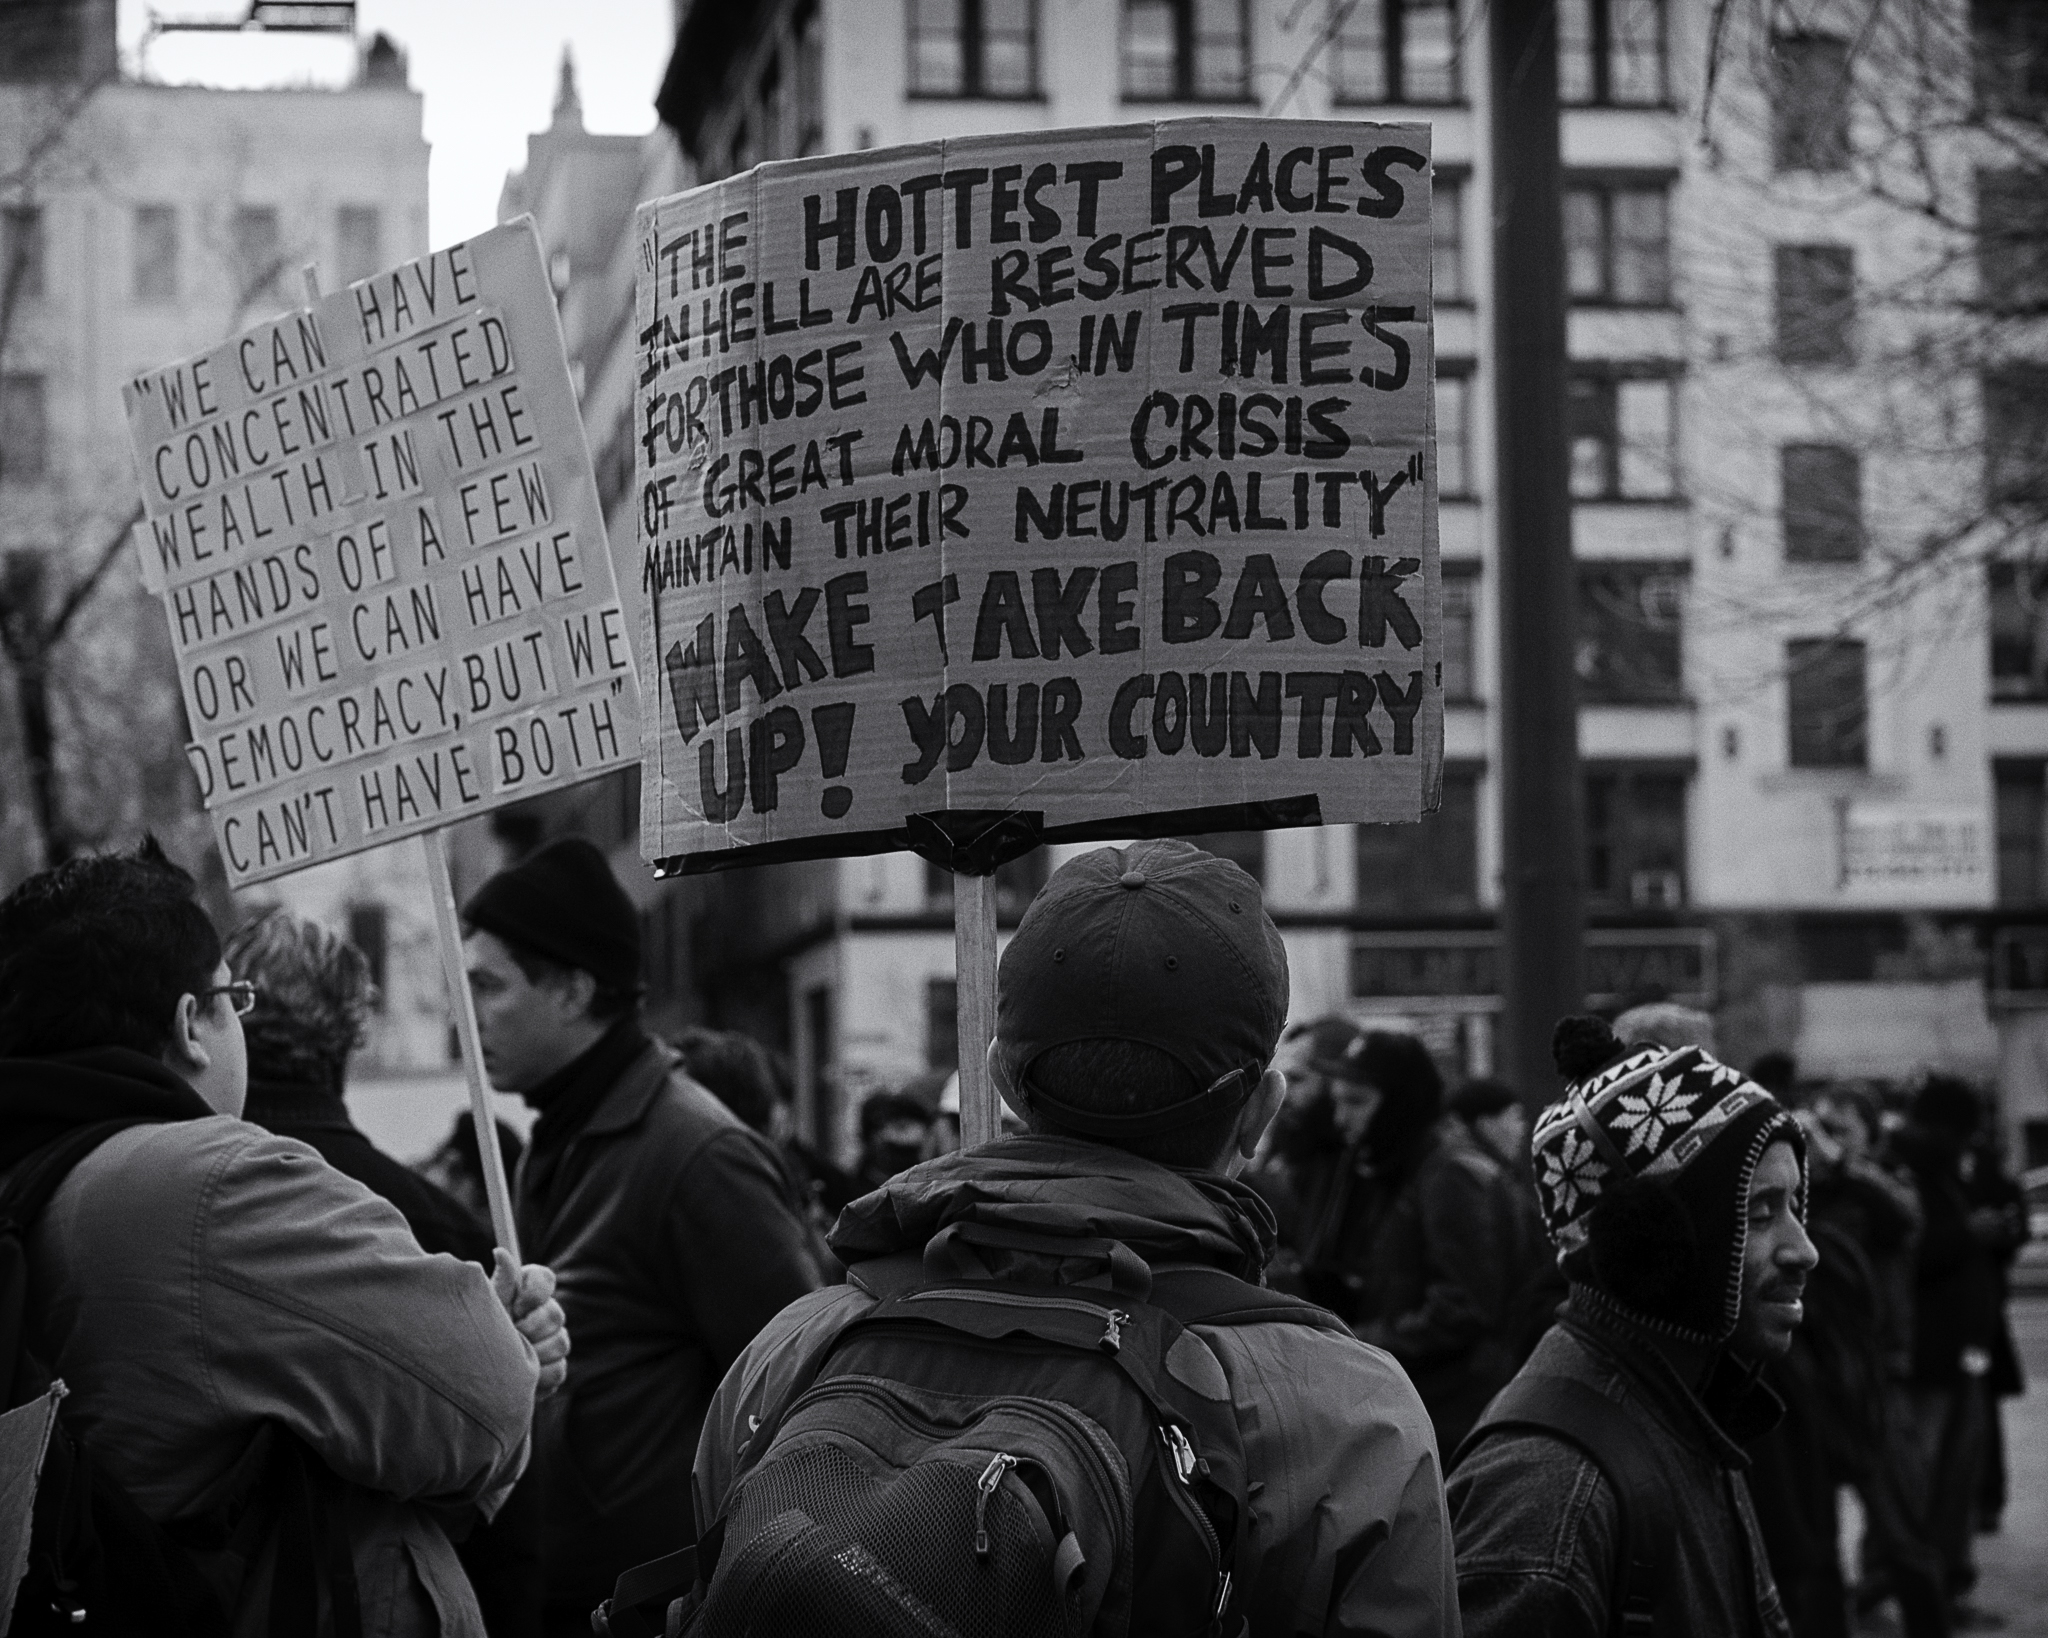 "WE CAN HAVE
CONCENTRATED
WEALTH IN THE
HANDS OF A FEW
OR WE CAN HAVE
DEMOCRACY, BUT WE
CAN'T HAVE BOTH"
"THE HOTTEST PLACES
IN HELL ARE RESERVED
FOR THOSE WHO IN TIMES
OF GREAT MORAL CRISIS
MAINTAIN THEIR NEUTRALITY"
WAKE TAKE BACK
UP! YOUR COUNTRY